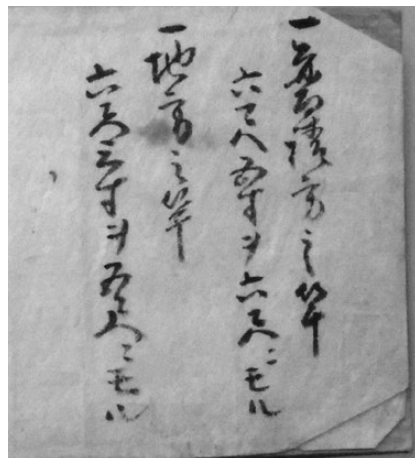 一普請方之竿
六尺五寸ヲ六尺ニモル
一地方之竿
六尺三寸ヲ五尺ニモル